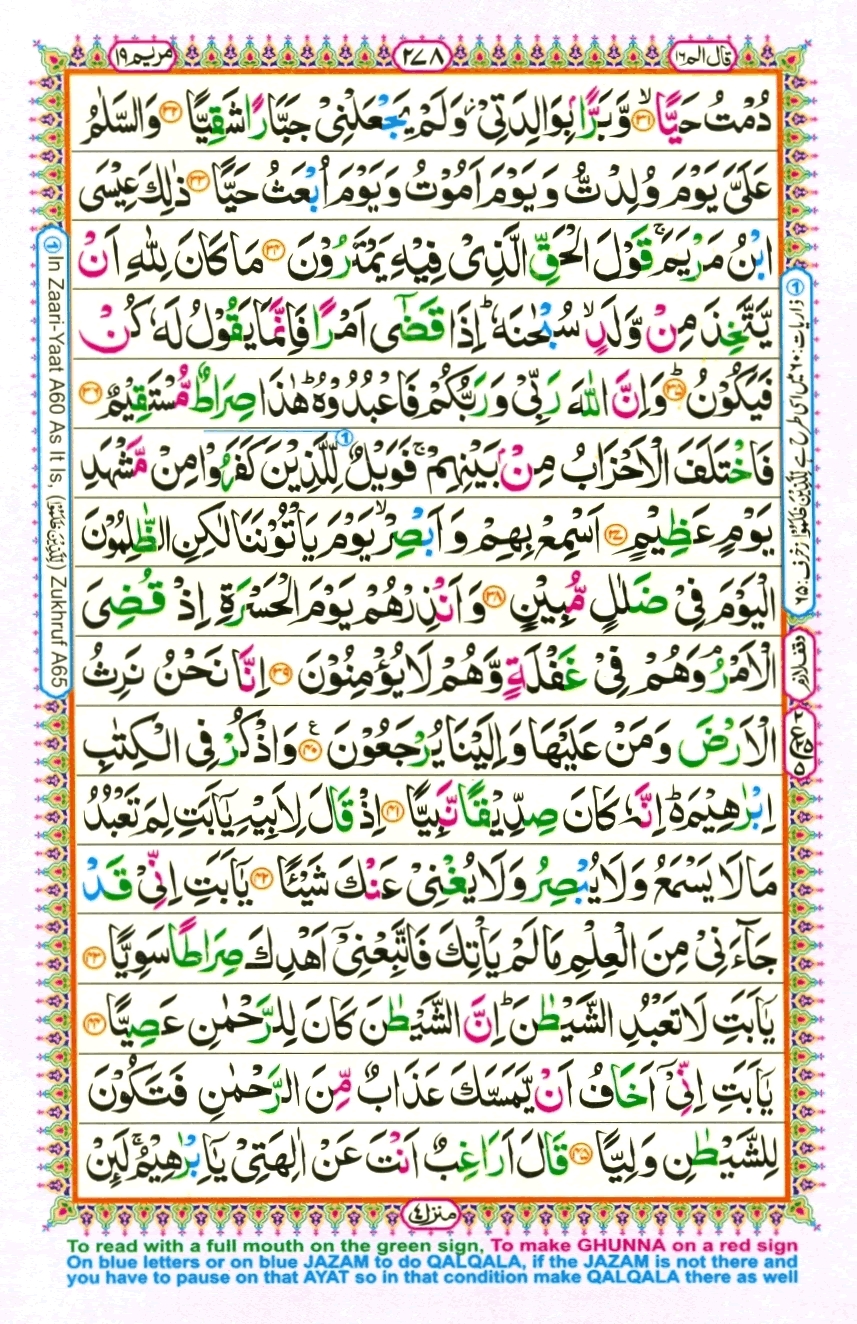 قال الم ١٦
٢٧٨
مریم ١٩
دُمْتُ حَیًّا ﴿٣١﴾ۙ وَّبَرًّۢا بِوَالِدَتِیْ ؗ وَلَمْ یَجْعَلْنِیْ جَبَّارًا شَقِیًّا ﴿٣٢﴾ وَالسَّلٰمُ
عَلَیَّ یَوْمَ وُلِدْتُّ وَیَوْمَ اَمُوْتُ وَیَوْمَ اُبْعَثُ حَیًّا ﴿٣٣﴾ ذٰلِكَ عِیْسَی
ابْنُ مَرْیَمَ ۚ قَوْلَ الْحَقِّ الَّذِیْ فِیْهِ یَمْتَرُوْنَ ﴿٣٤﴾ مَا كَانَ لِلّٰهِ اَنْ
یَّتَّخِذَ مِنْ وَّلَدٍ ۙ سُبْحٰنَهٗ ؕ اِذَا قَضٰۤی اَمْرًا فَاِنَّمَا یَقُوْلُ لَهٗ كُنْ
فَیَكُوْنُ ﴿٣٥﴾ؕ وَاِنَّ اللّٰهَ رَبِّیْ وَرَبُّكُمْ فَاعْبُدُوْهُ ؕ هٰذَا صِرَاطٌ مُّسْتَقِیْمٌ ﴿٣٦﴾
فَاخْتَلَفَ الْاَحْزَابُ مِنْۢ بَیْنِهِمْ ۚ فَوَیْلٌ لِّلَّذِیْنَ كَفَرُوْا مِنْ مَّشْهَدِ
یَوْمٍ عَظِیْمٍ ﴿٣٧﴾ اَسْمِعْ بِهِمْ وَاَبْصِرْ ۙ یَوْمَ یَاْتُوْنَنَا لٰكِنِ الظّٰلِمُوْنَ
الْیَوْمَ فِیْ ضَلٰلٍ مُّبِیْنٍ ﴿٣٨﴾ وَاَنْذِرْهُمْ یَوْمَ الْحَسْرَةِ اِذْ قُضِیَ
الْاَمْرُ ۘ وَهُمْ فِیْ غَفْلَةٍ وَّهُمْ لَا یُؤْمِنُوْنَ ﴿٣٩﴾ اِنَّا نَحْنُ نَرِثُ
الْاَرْضَ وَمَنْ عَلَیْهَا وَاِلَیْنَا یُرْجَعُوْنَ ﴿٤٠﴾ ع وَاذْكُرْ فِی الْكِتٰبِ
اِبْرٰهِیْمَ ؕ اِنَّهٗ كَانَ صِدِّیْقًا نَّبِیًّا ﴿٤١﴾ اِذْ قَالَ لِاَبِیْهِ یٰۤاَبَتِ لِمَ تَعْبُدُ
مَا لَا یَسْمَعُ وَلَا یُبْصِرُ وَلَا یُغْنِیْ عَنْكَ شَیْـًٔا ﴿٤٢﴾ یٰۤاَبَتِ اِنِّیْ قَدْ
جَآءَنِیْ مِنَ الْعِلْمِ مَا لَمْ یَاْتِكَ فَاتَّبِعْنِیْۤ اَهْدِكَ صِرَاطًا سَوِیًّا ﴿٤٣﴾
یٰۤاَبَتِ لَا تَعْبُدِ الشَّیْطٰنَ ؕ اِنَّ الشَّیْطٰنَ كَانَ لِلرَّحْمٰنِ عَصِیًّا ﴿٤٤﴾
یٰۤاَبَتِ اِنِّیْۤ اَخَافُ اَنْ یَّمَسَّكَ عَذَابٌ مِّنَ الرَّحْمٰنِ فَتَكُوْنَ
لِلشَّیْطٰنِ وَلِیًّا ﴿٤٥﴾ قَالَ اَرَاغِبٌ اَنْتَ عَنْ اٰلِهَتِیْ یٰۤاِبْرٰهِیْمُ ۚ لَئِنْ
① ذاریات: ٦٠ میں اسی طرح ہے لِلَّذِیْنَ ظَلَمُوْا زخرف: ٦٥
وقف لازم
① In Zaari-Yaat A60 As It Is, (لِلَّذِیْنَ ظَلَمُوْا) Zukhruf A65
منزل ٤
To read with a full mouth on the green sign, To make GHUNNA on a red sign
On blue letters or on blue JAZAM to do QALQALA, if the JAZAM is not there and
you have to pause on that AYAT so in that condition make QALQALA there as well